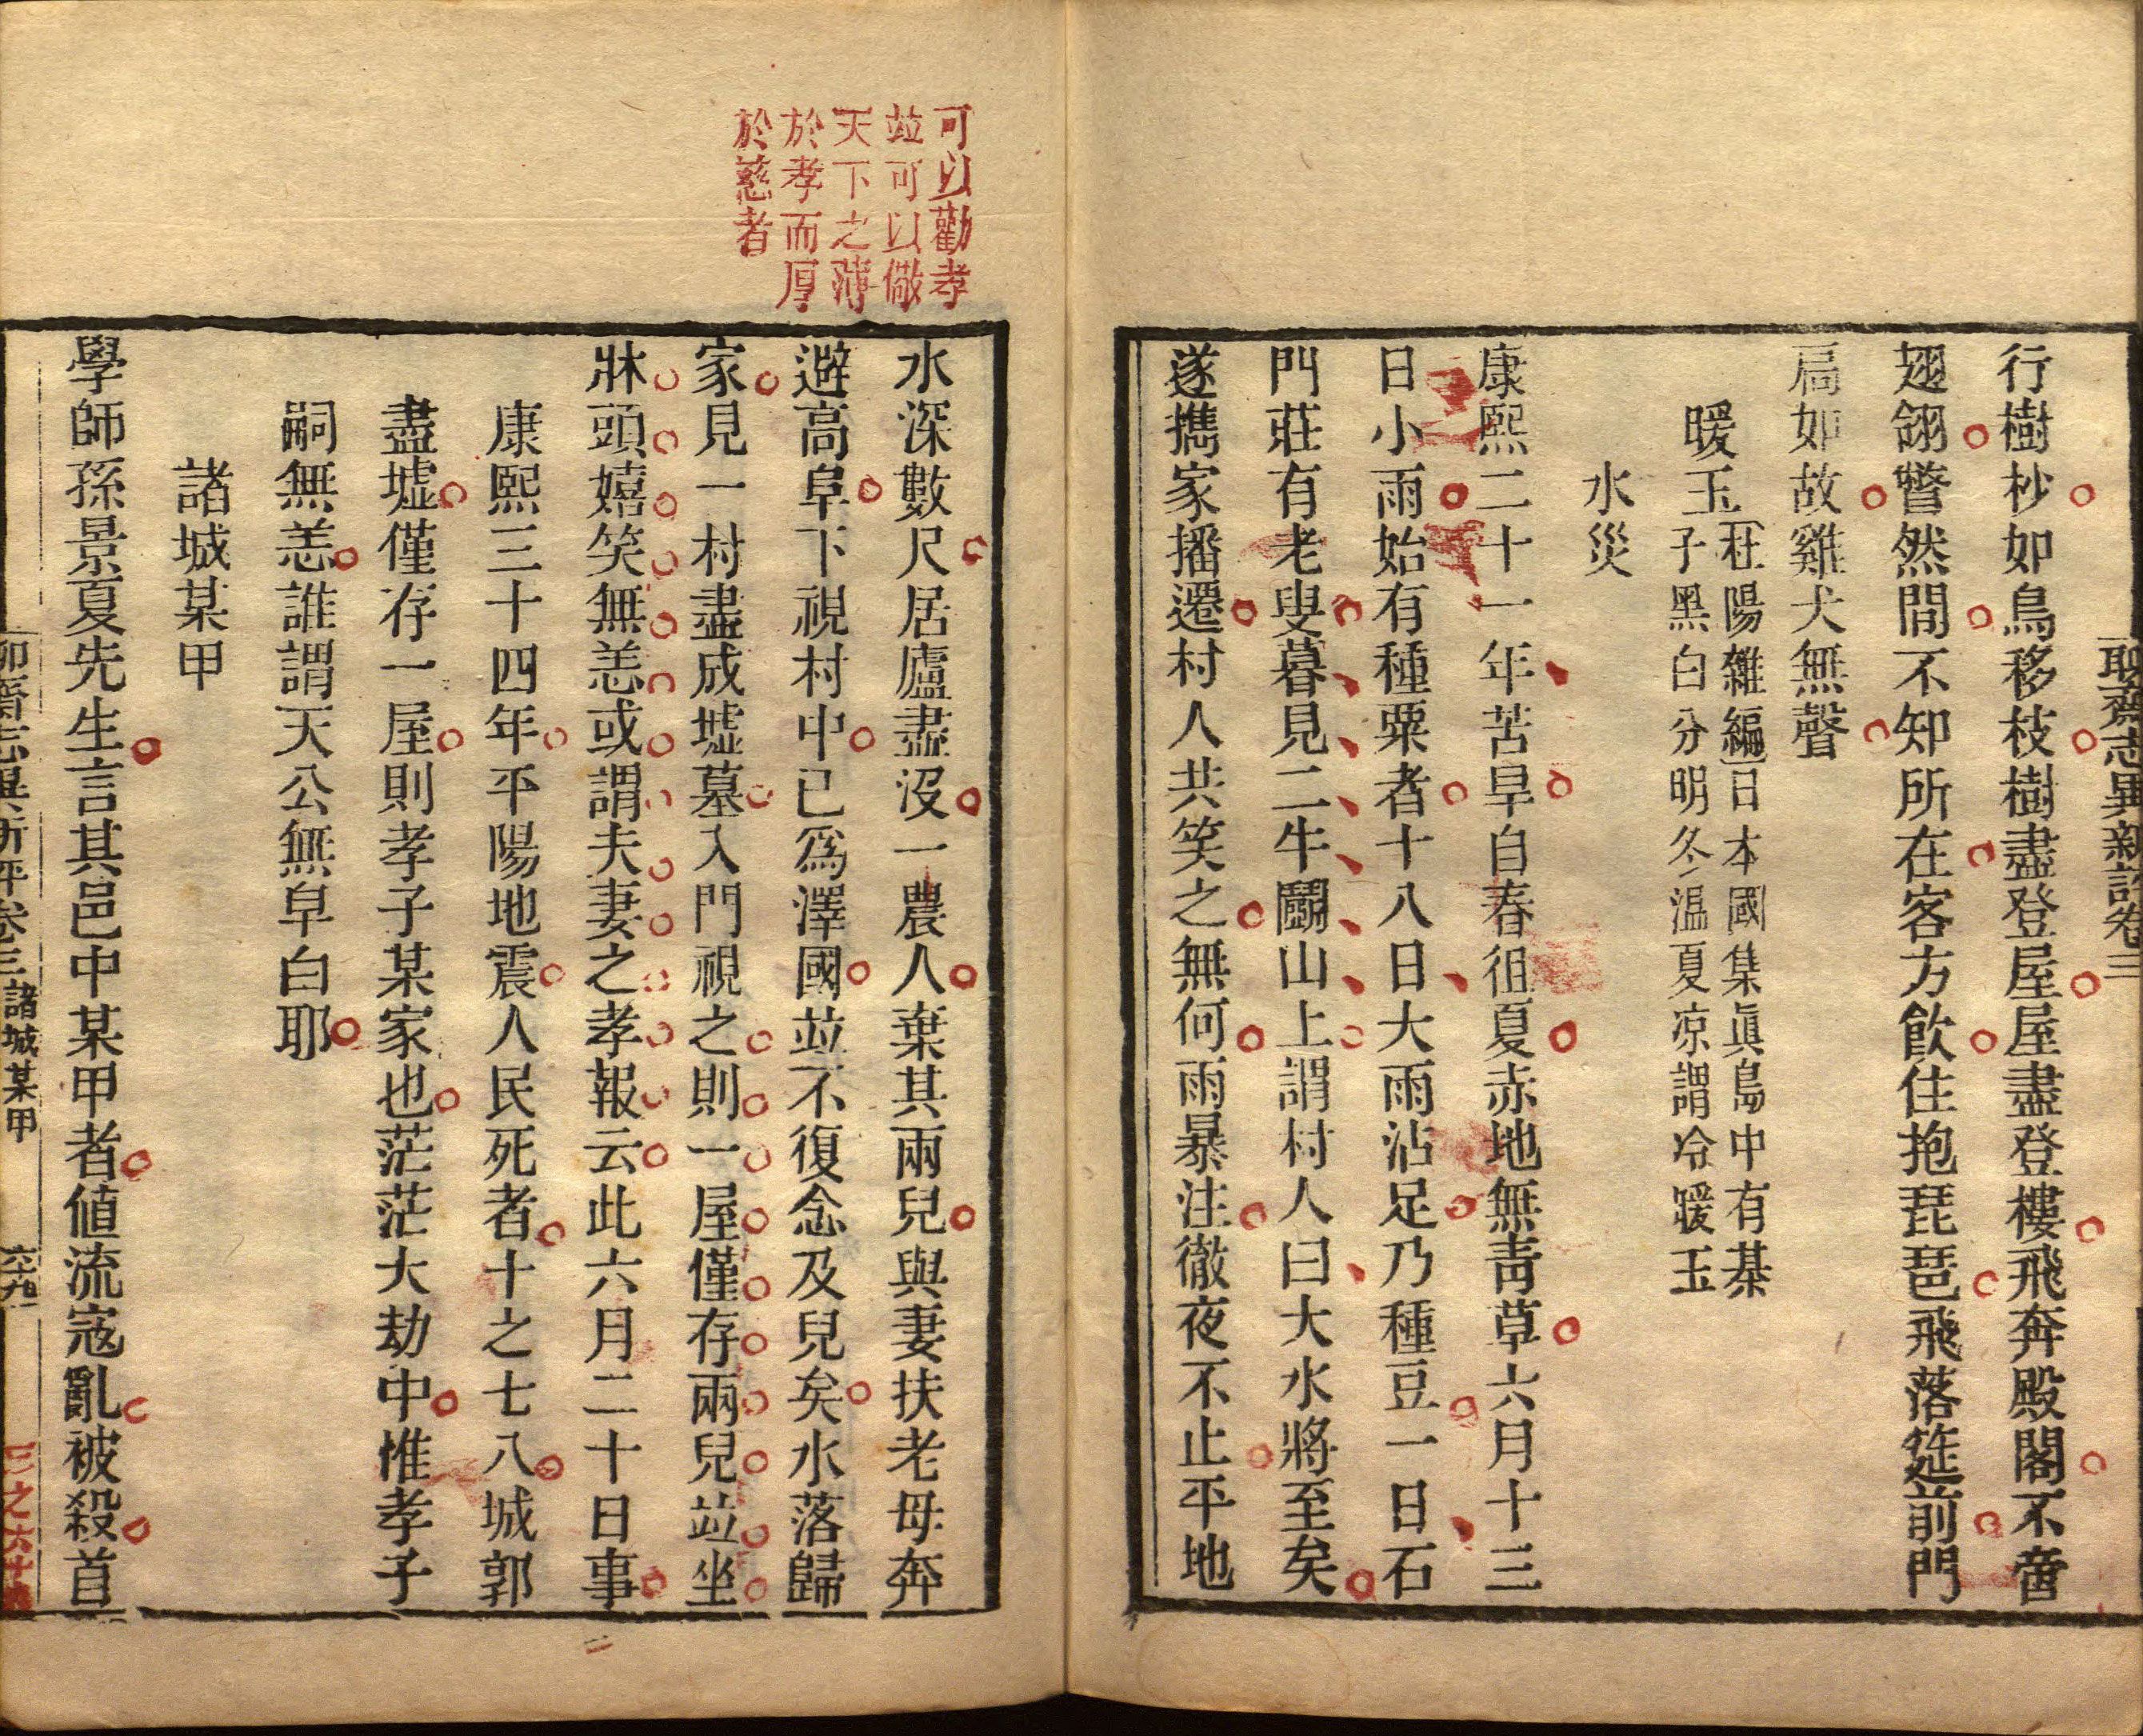 聊齋志異新評卷三
行樹杪如鳥移枝樹盡登屋屋盡登樓飛奔殿閣不啻
翅翎瞥然間不知所在客方飲住抱琵琶飛落筵前門
扃如故雞犬無聲
暖玉
杜陽雜編日本國集眞島中有棊
子黑白分明冬溫夏凉謂冷暖玉
水災
康熙二十一年苦旱自春徂夏赤地無青草六月十三
日小雨始有種粟者十八日大雨沾足乃種豆一日石
門莊有老叟暮見二牛鬭山上謂村人曰大水將至矣
遂攜家播遷村人共笑之無何雨暴注徹夜不止平地
可以勸孝
竝可以儆
天下之薄
於孝而厚
於慈者
水深數尺居廬盡沒一農人棄其兩兒與妻扶老母奔
避高阜下視村中已爲澤國竝不復念及兒矣水落歸
家見一村盡成墟墓入門視之則一屋僅存兩兒竝坐
牀頭嬉笑無恙或謂夫妻之孝報云此六月二十日事
康熙三十四年平陽地震人民死者十之七八城郭
盡墟僅存一屋則孝子某家也茫茫大劫中惟孝子
嗣無恙誰謂天公無皁白耶
諸城某甲
學師孫景夏先生言其邑中某甲者値流寇亂被殺首
聊齋志異新評卷三 諸城某甲 六九
三之六十